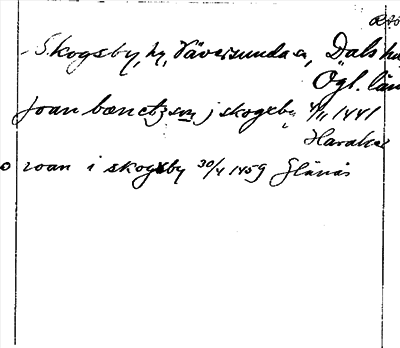 Skogsby, by, Täversunda s, Dals h
Ögl. län
joan bænctzson j skogxby 4/11 1441
o roan i skogxby 30/4 1459 Glänås